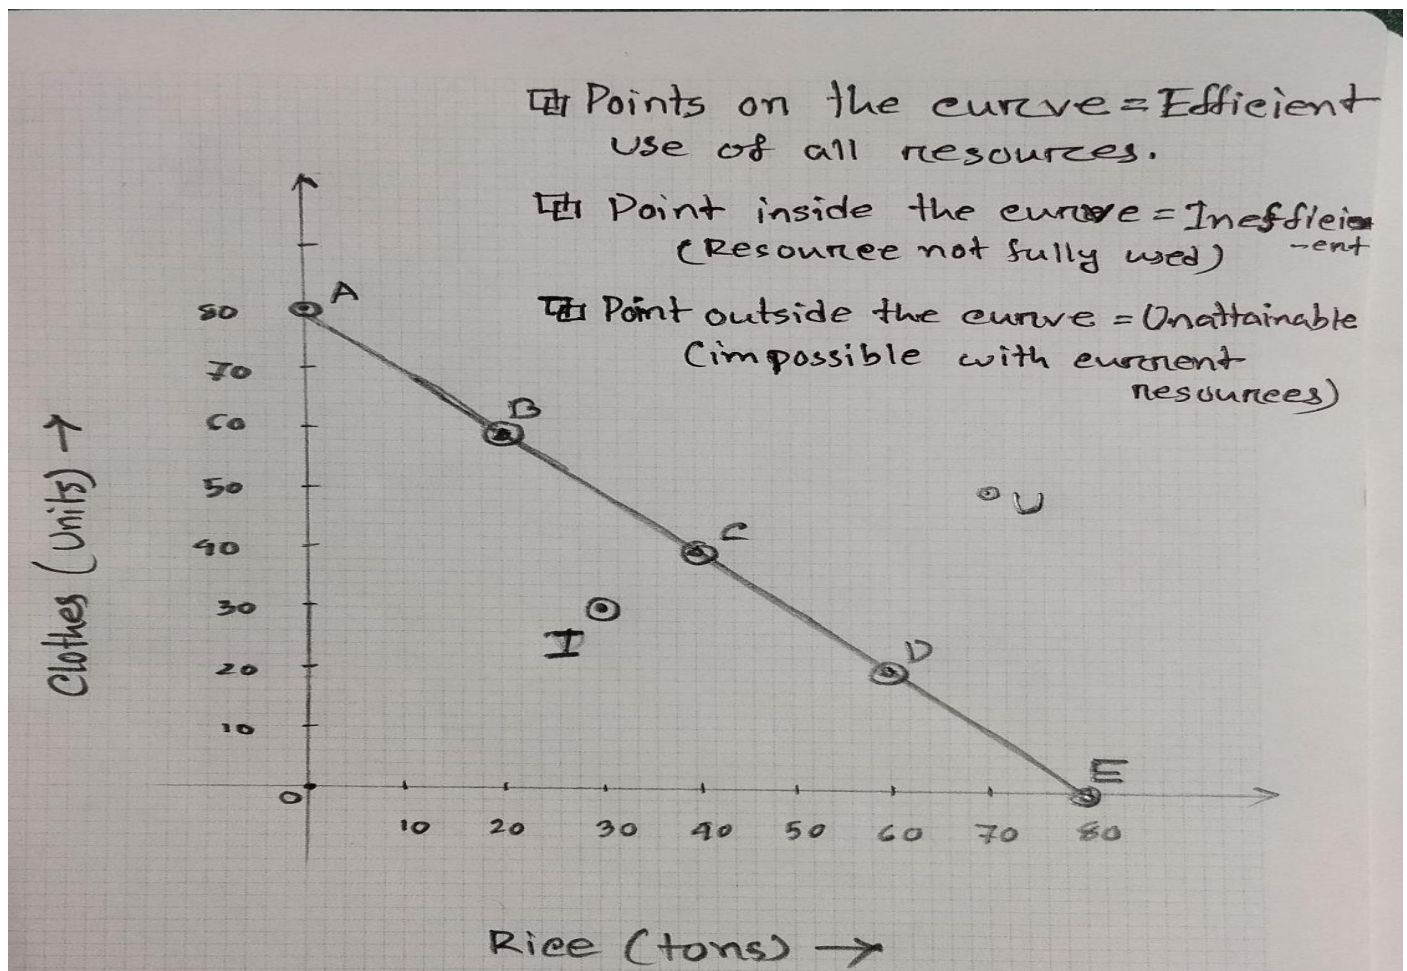 Points on the curve = Efficient
use of all resources.
Point inside the curve = Inefficie
(Resource not fully used) -ent
Point outside the curve = Unattainable
(impossible with current
resources)
A
80
70
B
60
50
U
C
40
30
I
D
20
10
E
0
10 20 30 40 50 60 70 80
Clothes (Units) →
Rice (tons) →